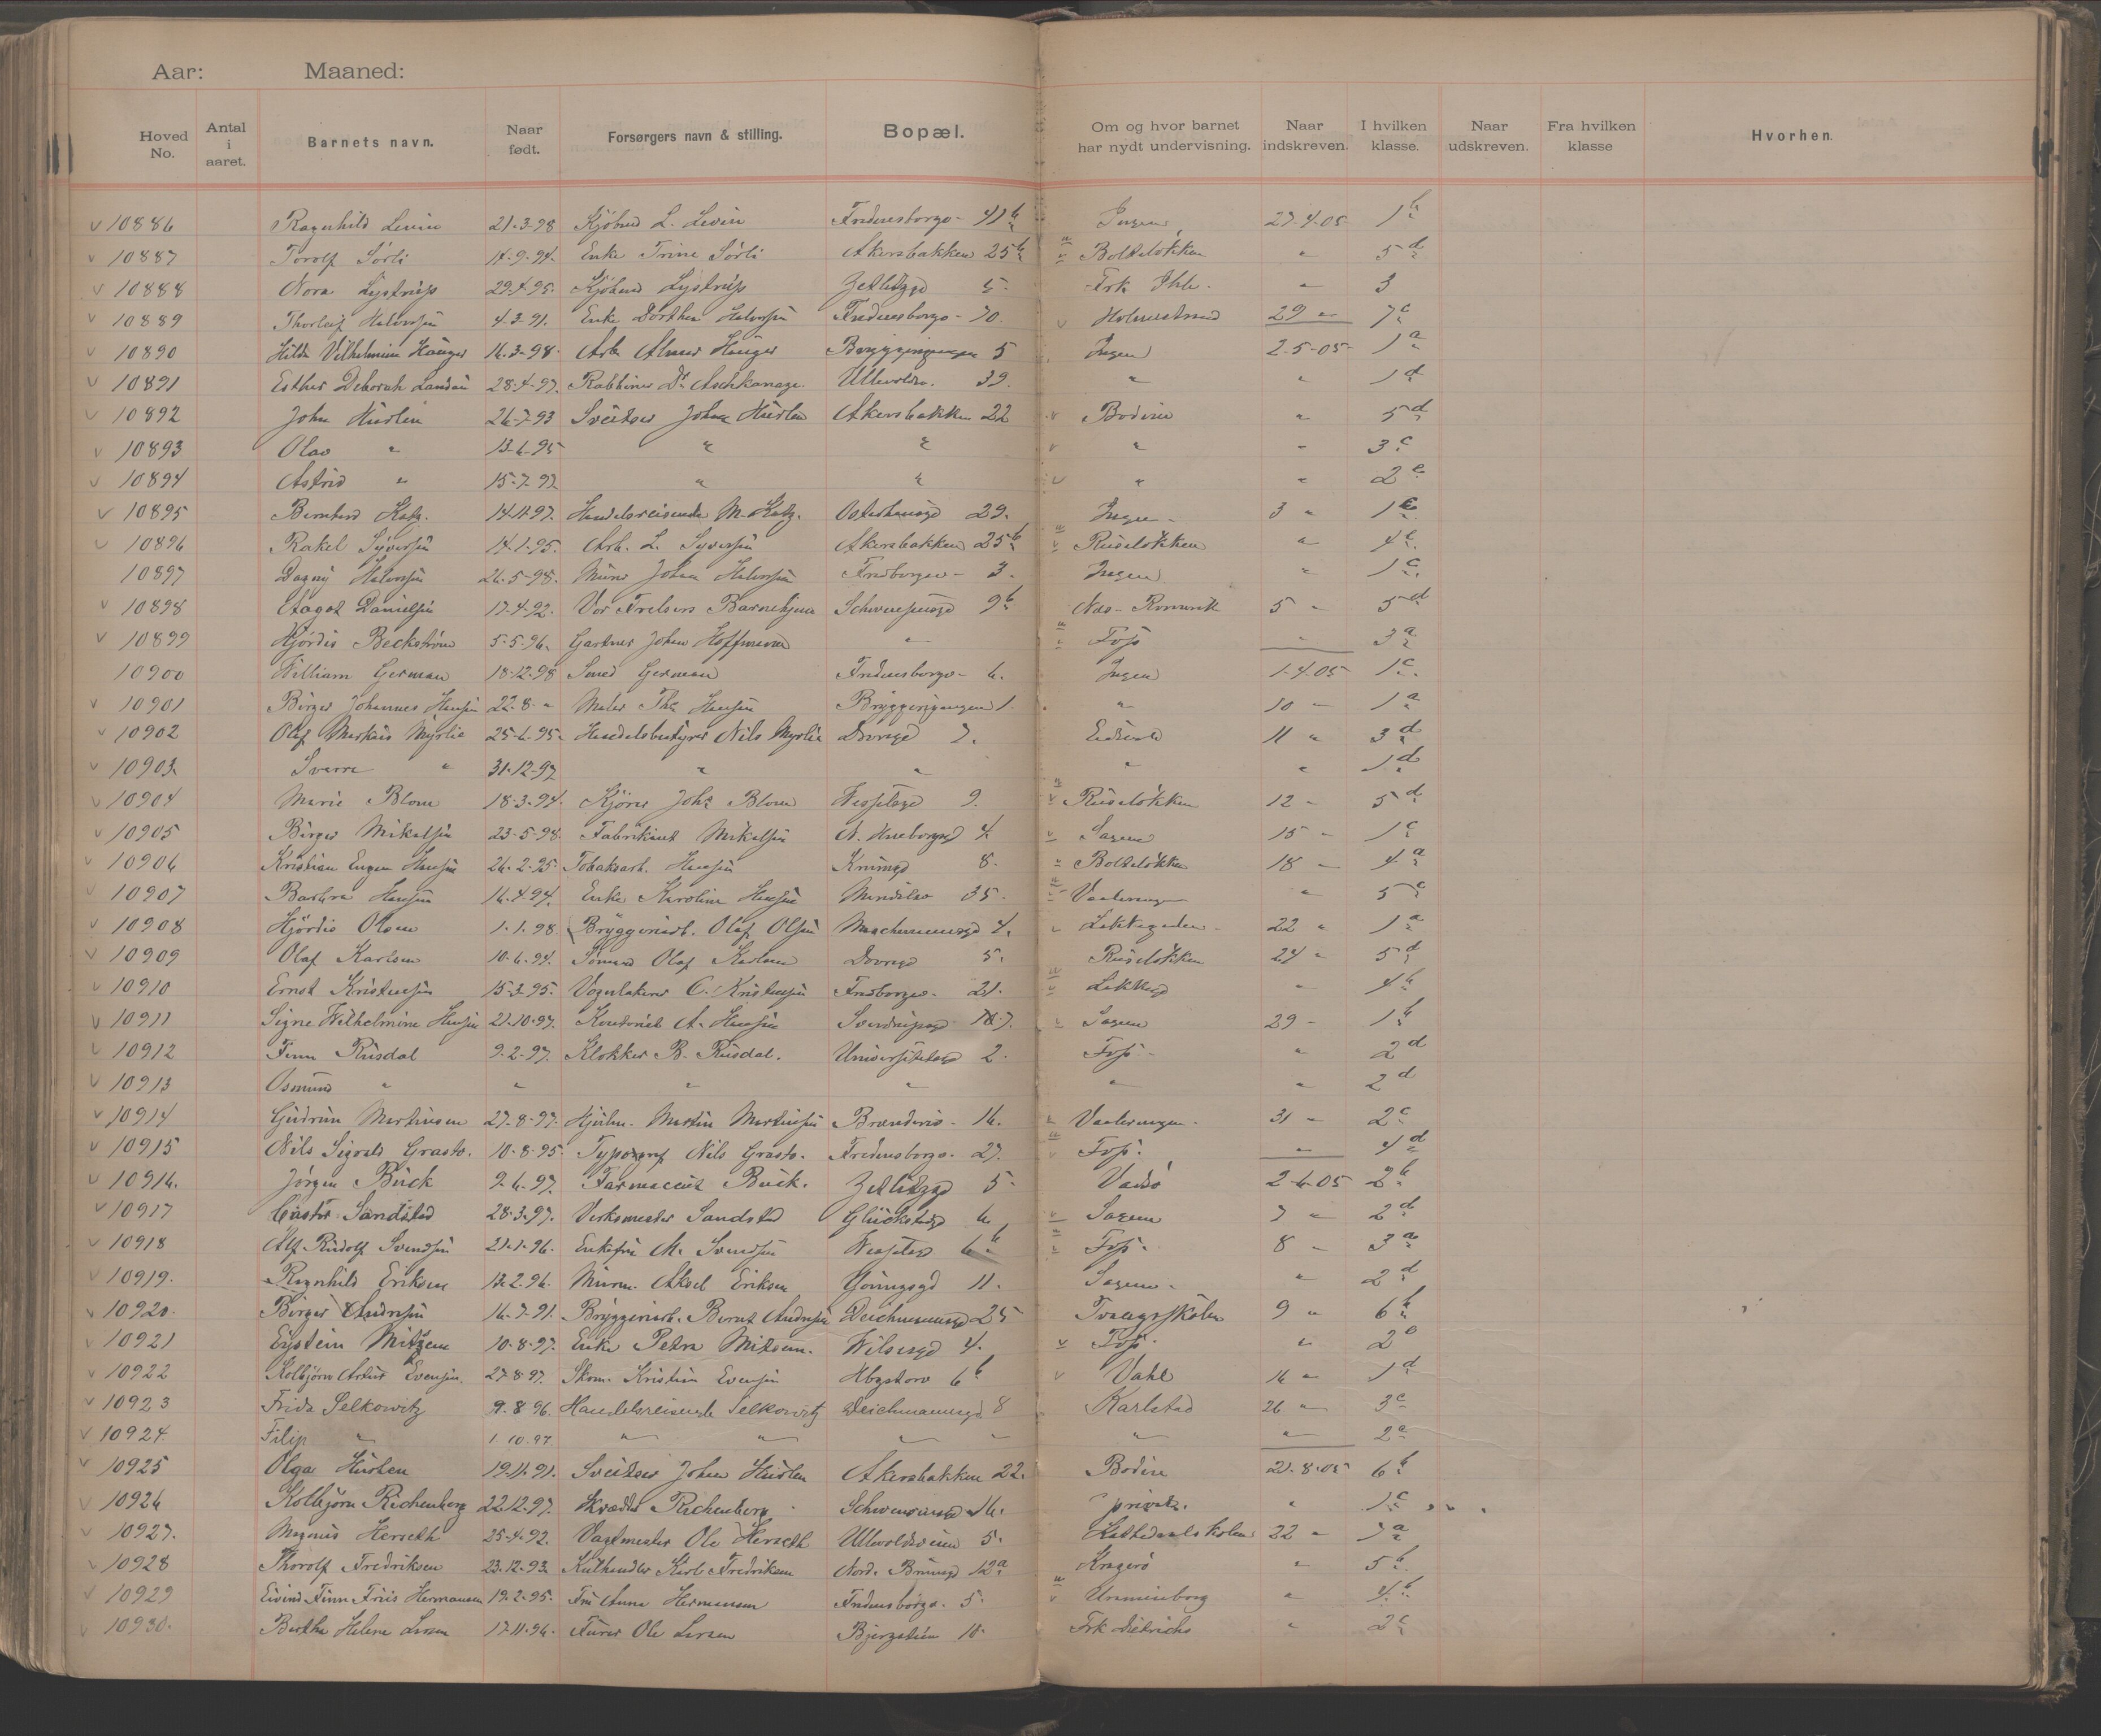 Aar: Maaned:
Hoved No. Antal i aaret. Barnets navn. Naar født. Forsørgers navn & stilling. Bopæl. Om og hvor barnet har nydt undervisning. Naar indskreven. I hvilken klasse. Naar udskreven. Fra hvilken klasse Hvorhen.
v 10886 Ragnhild Levin 21-3-98 Kjöbmd L. Levin Fredensborgv- 41 b Ingen 27-4-05 1 b
v 10887 Torolf Sörli 14-9-94. Enke Trine Sörli Akersbakken 25 b Bolteløkken " 5 d
v 10888 Nora Lystrup 29.4.95. Kjöbmd Lystrup Zetlitzgd 5- Frk Ihle. " 3
v 10889 Thorleif Halvorsen 4-3-91. Enke Dorthea Halvorsen Fredensborgv- 70. v Holmestrand 29 " 7 c
v 10890 Hilda Vilhelmine Hauger 16-3-98. Arb. Hauger Bryggerigangen 5 Ingen 2-5-05- 1 a
v 10891 Esther Deborah Landau 28-4-97. Rabbiner Dr. Aschkanaze. Ullevoldsv. 39. " " 1 d
v 10892 John Hurlen 26-7-93 Sveitser Johan Hurlen Akersbakken 22 v Bodin " 5 d
v 10893 Olav " 13-6-95 " " v " " 3 c
v 10894 Astrid " 15-7-97 " " v " " 2 e
v 10895 Bernhard Katz. 14-11-97. Handelsreisende M. Katz. Osterhausgd 29. Ingen - 3 " 1
v 10896 Rakel Syversen 14-1-95. Arb. L. Syversen Akersbakken 25 b v Ruseløkken " 4 c
10897 Dagny Halvorsen 26-5-98. Murer Johan Halvorsen Fredborgv- 3. Ingen " 1 c
v 10898 Aagot Danielsen 17-4-92. Vor Frelsers Barnehjem Schwensensgd 9 b Nes - Romerik 5 " 5 d
v 10899 Hjördis Beckström 5-5-96. Gartner Johan Hoffmann " Foss " 3 a
10900 William German 18-12-98 Smed German Fredensborgv- 6. Ingen 1-4-05 1 c
v 10901 Birger Johannes Hansen 22-8- " Maler Hansen Bryggerigangen 1. " 10 " 1 a
v 10902 Olaf Markus Myrlie 25-6-95- Handelsbestyrer Nils Myrlie Dovregd 7. Eidsvold 11 " 3 d
v 10903. Sverre " 31-12-97 " " " " 1 d
v 10904 Marie Blom 18-3-94. Kjörer Johs Blom Wesselsgd 9. v Ruseløkken 12 - 5 d
v 10905 Birger Mikalsen 23-5-98. Fabrikant Mikalsen 4. v Sagene 15 " 1 c
v 10906 Kristian Eugen Hansen 26-2-95- Tobaksarb. Hansen Krumgd 8. v Bolteløkken 18 - 4 a
v 10907 Barbra Hansen 16-4-94. Enke Karoline Hansen 35. Vaalerengen " 5 c
v 10908 Hjördis Olsen 1-1-98. Bryggeriarb. Olaf Olsen 4. v Lakkegaden - 22 " 1 a
v 10909 Olaf Karlsen 10-6-94. Sømand Olaf Karlsen Dovregd 5. Ruseløkken 24 " 5 d
v 10910 Ernst Kristensen 15-3-95. C. Kristensen Fredborgv- 21. v Lakkegd " 4 b
v 10911 Signe Wilhelmine Hansen 21-10-97. Kontorist A. Hansen Sverdrupsgd v Sagene 29 - 1 b
v 10912 Finn Rusdal 9-2-97. Klokker B. Rusdal. Universitetsgd 2. Foss - " 2 d
v 10913 Osmund " " " " " " 2 d
v 10914 Gudrun Martinsen 27-8-97. Hjulm. Martin Martinsen 16. v Vaalerengen. 31 " 2 c
v 10915 Nils Sigvald Grasto. 10-8-95 Typograf Nils Grasto. Fredensborgv. 27. v Foss. " 4 d
v 10916. Jörgen Buck 9-6-97. Farmaceut Buck. Zetlitzgd 5- Vadsö 2-6-05 2 b
v 10917 Gustav Sandstad 28-3-97. Verksmester Sandstad Glückstadgd 6. v Sagene 7 " 2 d
v 10918 Alf Rudolf Svendsen 21-1-96. Enkefru M. Svendsen Wesselsgd 6 b v Foss. 8 " 3 a
v 10919. Ragnhild Eriksen 12-2-96. Murm. Aksel Eriksen Youngsgd 11. Sagene - " 2 d
v 10920. Birger Andersen 16-7-91. Bryggeriarb. Bernt Andersen Deichmannsgd 25 Tvangsskolen 9 " 6 b
v 10921 Eystein Mitzem 10-8-97. Enke Petra Mitzem. Wilsesgd 4. v Foss. " 2
v 10922 Kolbjörn Artur Evensen. 27-8-97. Skom. Kristian Evensen 6 b v Vahl 16 " 1 d
v 10923 Frida Selkowitz 9. 8 96. Handelsreisende Selkowitz Deichmannsgd 8 Karlstad 26 " 3 c
v 10924 Filip " 1. 10. 97 " " " " " " 2 c
v 10925 Olga Hurlen 19.11.91. Sveitser Johan Hurlen Akersbakken 22. Bodin 21-8-05 6 b
v 10926 Kolbjörn Richenberg 22.12.97. Skrædder Richenberg Schwensensgd 16. privat. " 1 c
v 10927. Magnus Herseth 25-4-92. Vagtmester Ole Herseth Ullevoldsveien 5. Kathedralskolen 22 " 7 a
v 10928 Thorolf Fredriksen 23-12-93. Kulhandler Karl Fredriksen Nord. Brungd 12 a Kragerö " 5 b
v 10929 Eivind Finn Friis Hermansen 19-2-95. Fru Anna Hermansen Fredensborgv. 5. v Uranienborg " 4 b
v 10930. Bertha Helene Larsen 17-11-96. Furer Ole Larsen Bjergstien 10. Frk Dietrichs " 2 c